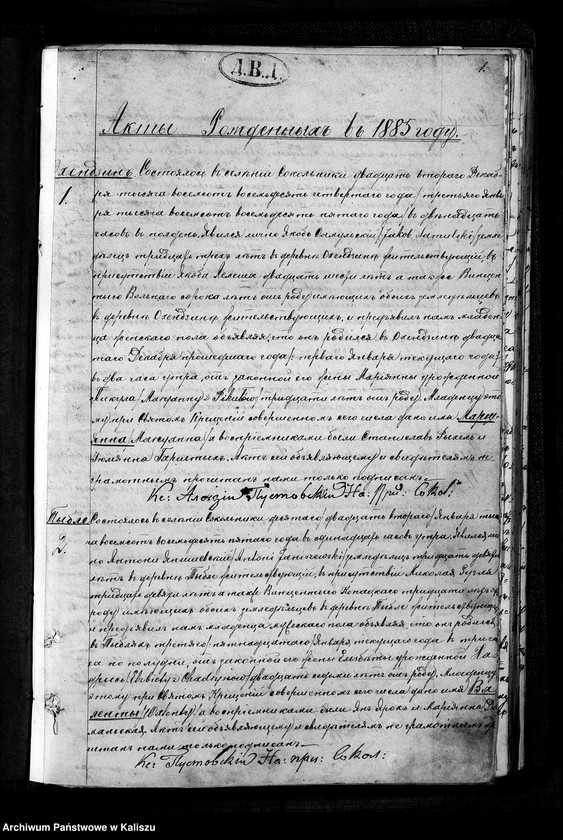 А.В.Д.
1.
Акты Рожденныхъ въ 1885 году.
Охендзинъ Состоялось въ селеніи Сокольники двадцать втораго Декаб-
1. ря тысяча восемсотъ восемьдесятъ четвертаго года / третьяго Янва-
ря тысяча восемсотъ восемьдесятъ пятаго года / въ двѣнадцать
часовъ въ полдень. Явился лично Якобъ / Jakob / земле-
дѣлецъ тридцать трехъ лѣтъ въ деревнѣ Охендзинѣ жительствующій въ
присутствіи Якова двадцать шести лѣтъ а также Винцен-
таго сорока лѣтъ отъ роду имѣющихъ обоихъ земледѣльцевъ
въ деревнѣ Охендзинѣ жительствующихъ, и предъявилъ намъ младен-
ца женскаго пола объявляя, что онъ родился въ Охендзинѣ двадца-
таго Декабря прошедшаго года / перваго Января текущаго года /
въ два часа утра, отъ законной его жены Маріянны урожденной
Пикула / Maryanny z / тридцати лѣтъ отъ роду. Младенцу это-
му при Святомъ Крещеніи совершенномъ сего числа дано имя Марі-
янна / Maryanna / а воспріемниками были Станиславъ и
Акте сей объявляющему и свидѣтелямъ не-
грамотнымъ прочитанъ нами только подписанъ.
Кс: Алойзій Пустовскій На: Прих: Сокол:
Пыбле Состоялось въ селеніи Сокольники десятаго / двадцать втораго / Января тыся-
2. ча восемсотъ восемьдесятъ пятаго года въ одинадцать часовъ утра. Явился лич-
но Антони / Antoni Janiszewski / земледѣлецъ тридцать девяти
лѣтъ въ деревнѣ Пыбле жительствующій, въ присутствіи Николая
тридцать девяти лѣтъ а также Винцентаго тридцати лѣтъ отъ
роду имѣющихъ обоихъ земледѣльцевъ въ деревнѣ Пыбле жительствующихъ
и предъявилъ намъ младенца мужескаго пола объявляя, что онъ родился
въ третяго / пятнадцатаго Января текущаго года въ три ча-
са по полудни, отъ законной его жены Елжбеты урожденной
/ Elżbiety z / двадцати седьми лѣтъ отъ роду. Младенцу
этому при Святомъ Крещеніи совершенномъ сего числа дано имя Ва-
ленты / Walenty / а воспріемниками были Янъ и Маріянна
Актъ сей объявляющему и свидѣтелямъ не грамотнымъ про-
читанъ нами только подписанъ
Кс: Пустовскій На: при: Сокол:
Archiwum Państwowe w Kaliszu